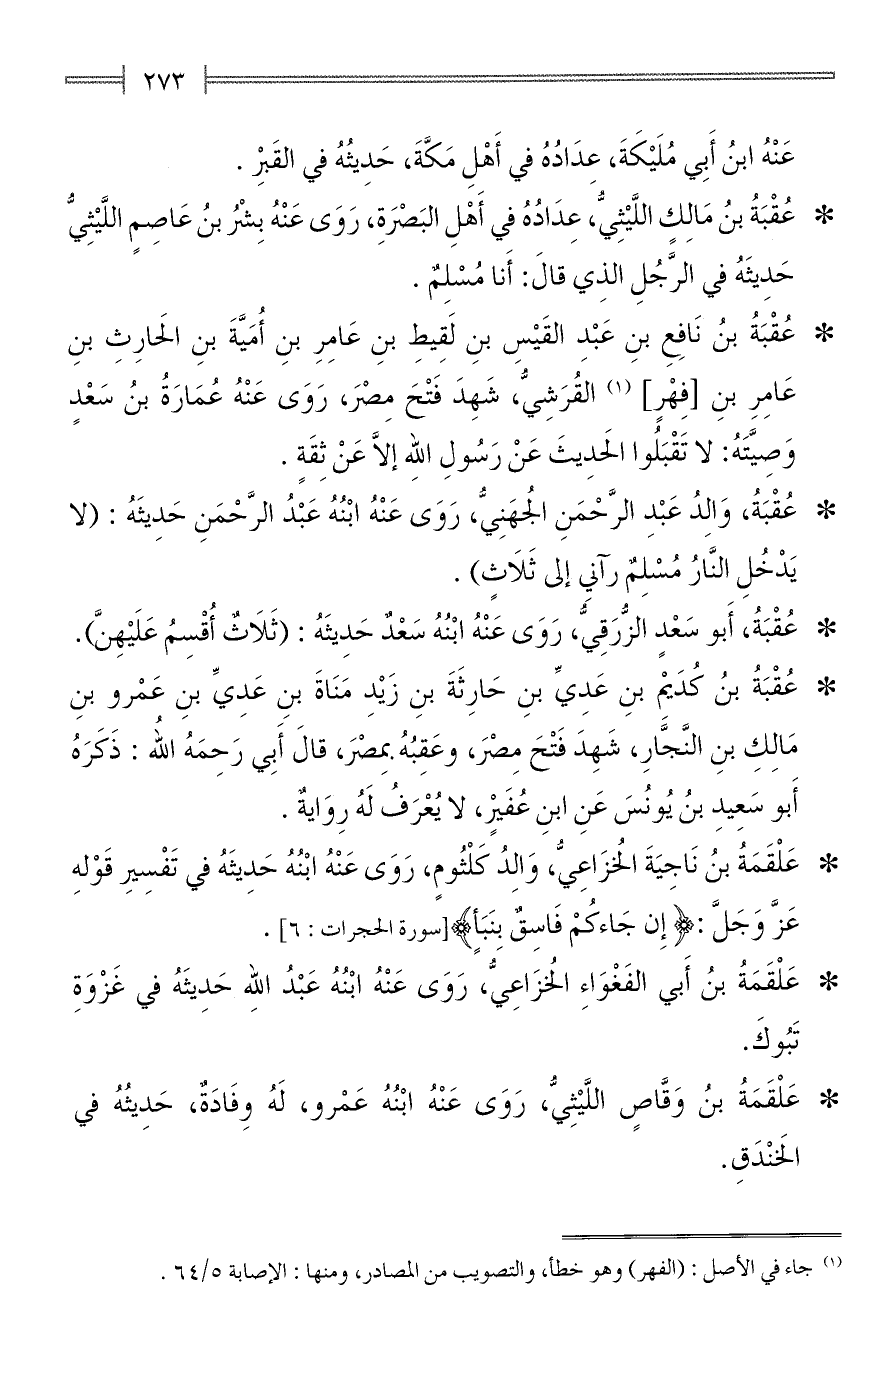 ٢٧٣
عَنْهُ ابنُ أَبي مُلَيْكَةَ، عِدَادُهُ في أَهْلِ مَكَّةَ، حَدِيثُهُ في القَبْرِ .
* عُقْبَةُ بنُ مَالِكٍ اللَّيْثِيُّ، عِدَادُهُ في أَهْلِ البَصْرَةِ، رَوَى عَنْهُ بِشْرُ بنُ عَاصِمٍ اللَّيْثِيُّ
حَدِيثَهُ في الرَّجُلِ الذي قالَ: أَنا مُسْلِمٌ .
* عُقْبَةُ بنُ نَافِعِ بنِ عَبْدِ القَيْسِ بنِ لَقِيطِ بنِ عَامِرِ بنِ أُمَيَّةَ بنِ الحَارِثِ بنِ
عَامِرِ بنِ [فِهْرٍ] (١) القُرَشِيُّ، شَهِدَ فَتْحَ مِصْرَ، رَوَى عَنْهُ عُمَارَةُ بنُ سَعْدٍ
وَصِيَّتَهُ: لا تَقْبَلُوا الحَدِيثَ عَنْ رَسُولِ اللهِ إلاَّ عَنْ ثِقَةٍ .
* عُقْبَةُ، وَالِدُ عَبْدِ الرَّحْمَنِ الجُهَنِيُّ، رَوَى عَنْهُ ابْنُهُ عَبْدُ الرَّحْمَنِ حَدِيثَهُ : (لا
يَدْخُلِ النَّارَ مُسْلِمٌ رآني إلى ثَلاَثٍ) .
* عُقْبَةُ، أَبو سَعْدٍ الزُّرَقِيُّ، رَوَى عَنْهُ ابْنُهُ سَعْدٌ حَدِيثَهُ : (ثَلاَثٌ أُقْسِمُ عَلَيْهِنَّ).
* عُقْبَةُ بنُ كُدَيْمِ بنِ عَدِيِّ بنِ حَارِثَةَ بنِ زَيْدِ مَنَاةَ بنِ عَدِيِّ بنِ عَمْرِو بنِ
مَالِكِ بنِ النَّجَّارِ، شَهِدَ فَتْحَ مِصْرَ، وعَقِبُهُ بمِصْرَ، قالَ أَبي رَحِمَهُ اللهُ : ذَكَرَهُ
أَبو سَعِيدِ بنُ يُونُسَ عَنِ ابنِ عُفَيْرٍ، لا يُعْرَفُ لَهُ رِوَايةٌ .
* عَلْقَمَةُ بنُ نَاجِيَةَ الخُزَاعِيُّ، وَالِدُ كَلْثُومٍ، رَوَى عَنْهُ ابْنُهُ حَدِيثَهُ في تَفْسِيرِ قَوْلِهِ
عَزَّ وَجَلَّ :﴿إِن جَاءكُمْ فَاسِقٌ بِنَبَأٍ﴾[سورة الحجرات : ٦] .
* عَلْقَمَةُ بنُ أَبي الفَغْوَاءِ الخُزَاعِيُّ، رَوَى عَنْهُ ابْنُهُ عَبْدُ اللهِ حَدِيثَهُ في غَزْوَةِ
تَبُوكَ.
* عَلْقَمَةُ بنُ وَقَّاصٍ اللَّيْثِيُّ، رَوَى عَنْهُ ابْنُهُ عَمْرو، لَهُ وِفَادَةٌ، حَدِيثُهُ في
الخَنْدَقِ.
(١) جاء في الأصل : (الفهر) وهو خطأ، والتصويب من المصادر، ومنها : الإصابة ٦٤/٥ .